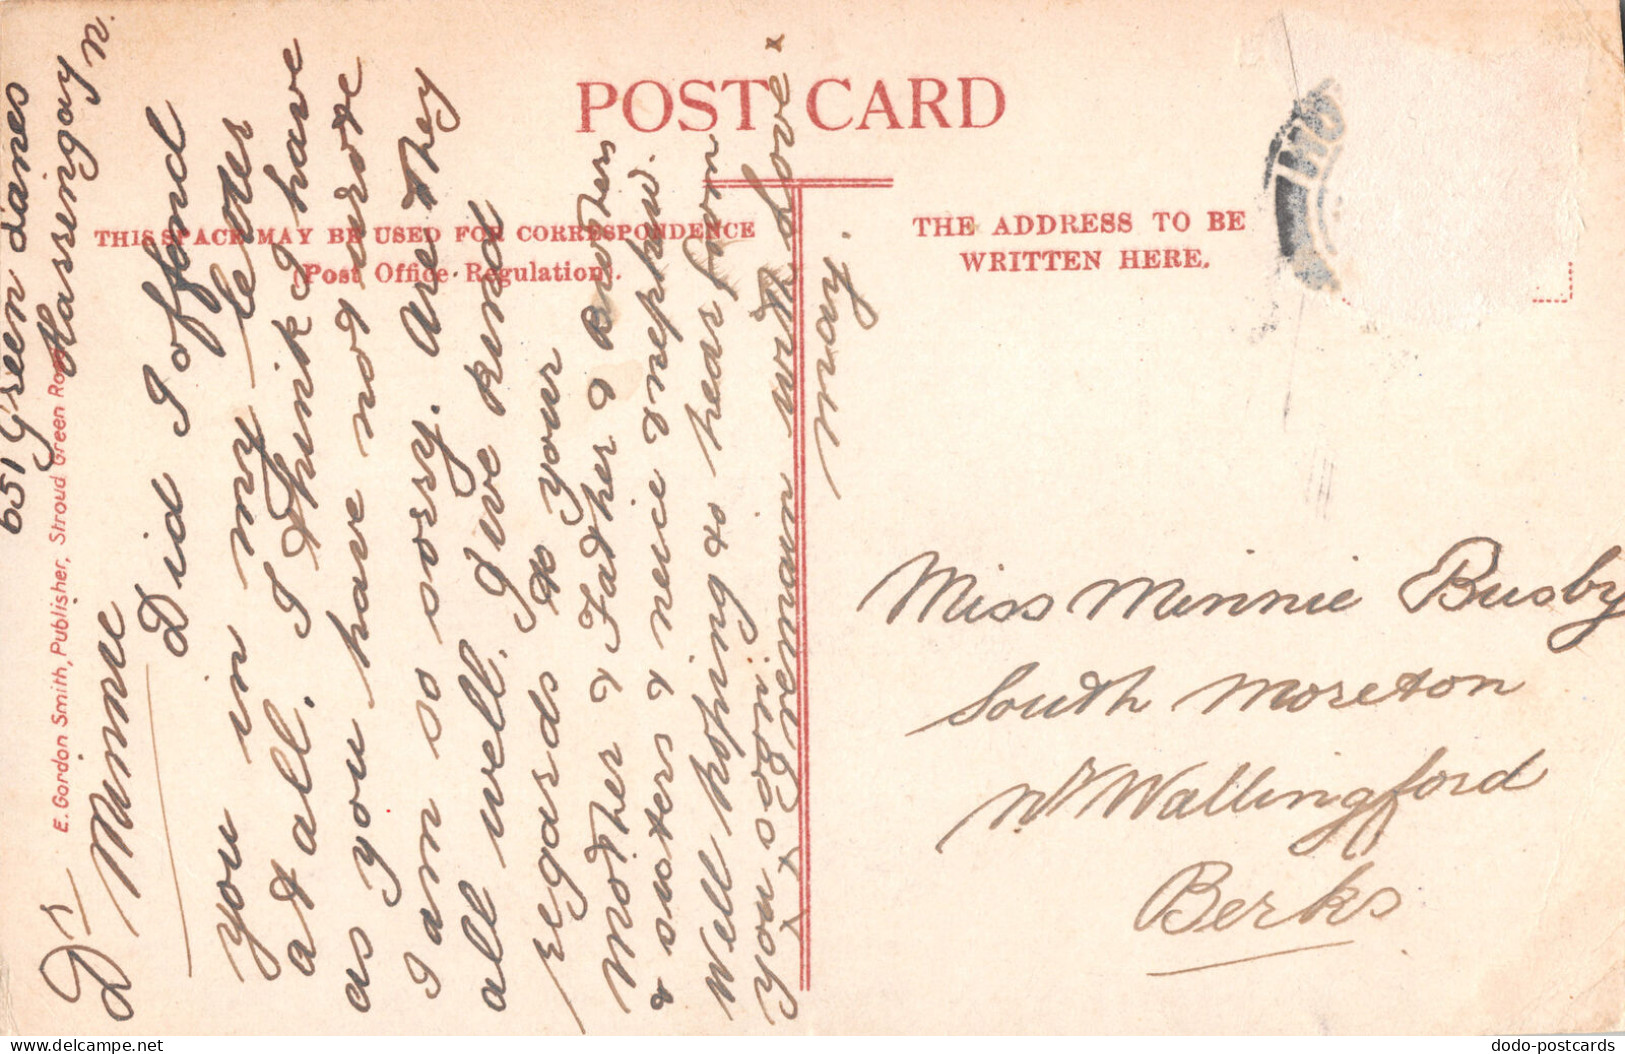 POST CARD
THIS SPACE MAY BE USED FOR CORRESPONDENCE
(Post Office Regulation).
THE ADDRESS TO BE
WRITTEN HERE.
E. Gordon Smith, Publisher, Stroud Green Road
651 Green Lanes
Harringay N.
Dr Minnie
Did I offend
you in my letter
at all. I think I have
as you have not wrote
I am so sorry. Are they
all well. Give kind
regards to your
Mother & Father & Brothers
& sisters & neice & nephw.
Well hoping to hear from
you soon I remain with love x
x x
Mory.
Miss Minnie Busby
South Moreton
Nr Wallingford
Berks
dodo-postcards